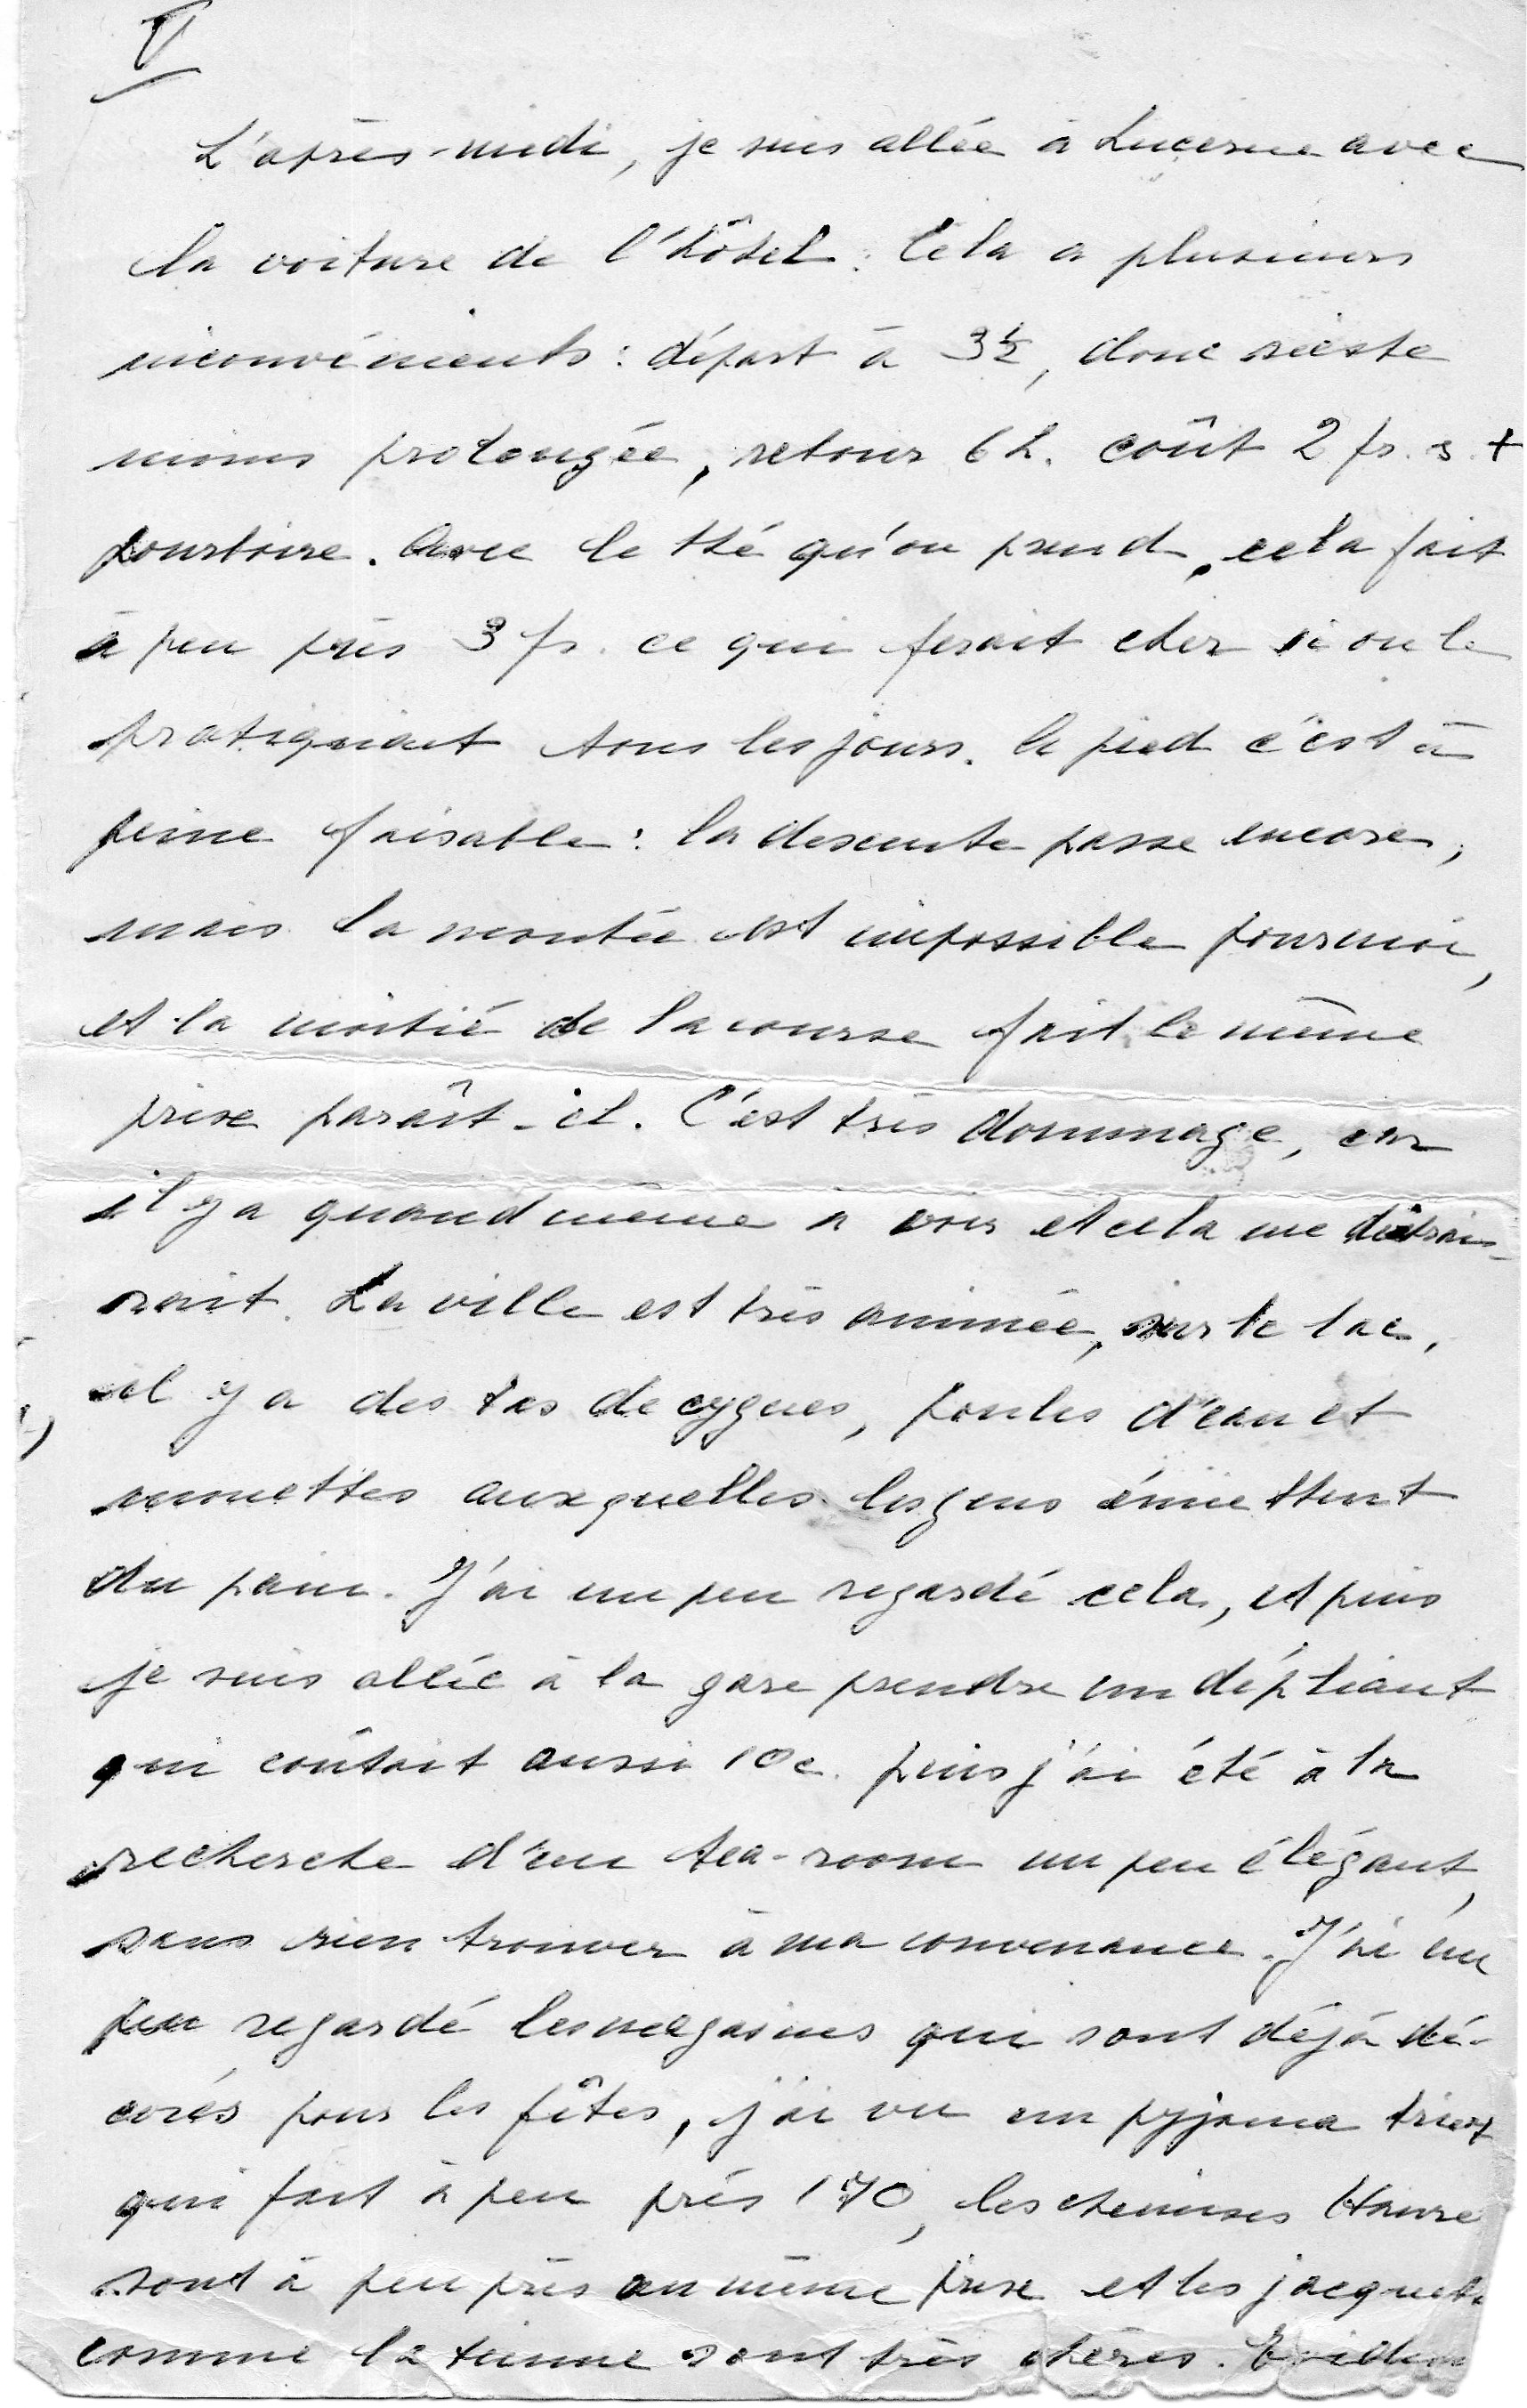 V
L'après-midi, je suis allée à Lucerne avec
la voiture de l'hôtel. Cela a plusieurs
inconvénients : départ à 3½, donc sieste
moins prolongée, retour 6 h. coût 2 fr. s. +
pourboire. Avec le thé qu'on prend, cela fait
à peu près 3 fr. ce qui ferait cher si on le
pratiquait tous les jours. A pied c'est à
peine faisable : la descente passe encore,
mais la montée est impossible pour moi,
et la moitié de la course fait le même
prix paraît-il. C'est très dommage, car
il y a quand même à voir et cela me distrai-
rait. La ville est très animée, sur le lac,
il y a des tas de cygnes, poules d'eau et
mouettes auxquelles les gens émiettent
du pain. J'ai un peu regardé cela, et puis
je suis allée à la gare prendre un dépliant
qui coûtait aussi 10 c. puis j'ai été à la
recherche d'un tea-room un peu élégant,
sans rien trouver à ma convenance. J'ai un
peu regardé les magasins qui sont déjà dé-
corés pour les fêtes, j'ai vu un pyjama
qui fait à peu près 170, les chemises
sont à peu près au même prix et les
comme la tienne sont très chères.